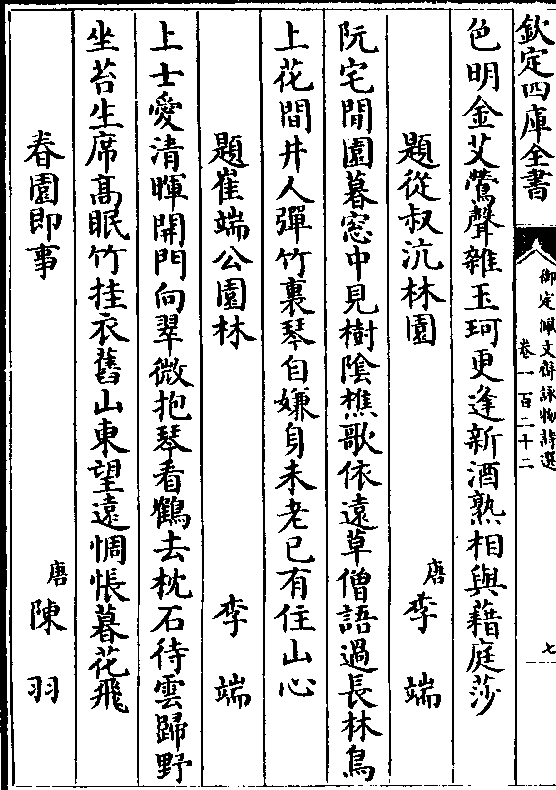 欽定四庫全書
御定佩文齋詠物詩選
卷一百二十二
七
色明金艾鶯聲雜玉珂更逢新酒熟相與藉庭莎
題從叔沆林園
唐李端
阮宅閒園暮窓中見樹陰樵歌依遠草僧語過長林鳥
上花間井人彈竹裏琴自嫌身未老已有住山心
題崔端公園林
李端
上士愛清暉開門向翠微抱琴看鶴去枕石待雲歸野
坐苔生席高眠竹挂衣舊山東望遠惆悵暮花飛
春園即事
唐陳羽